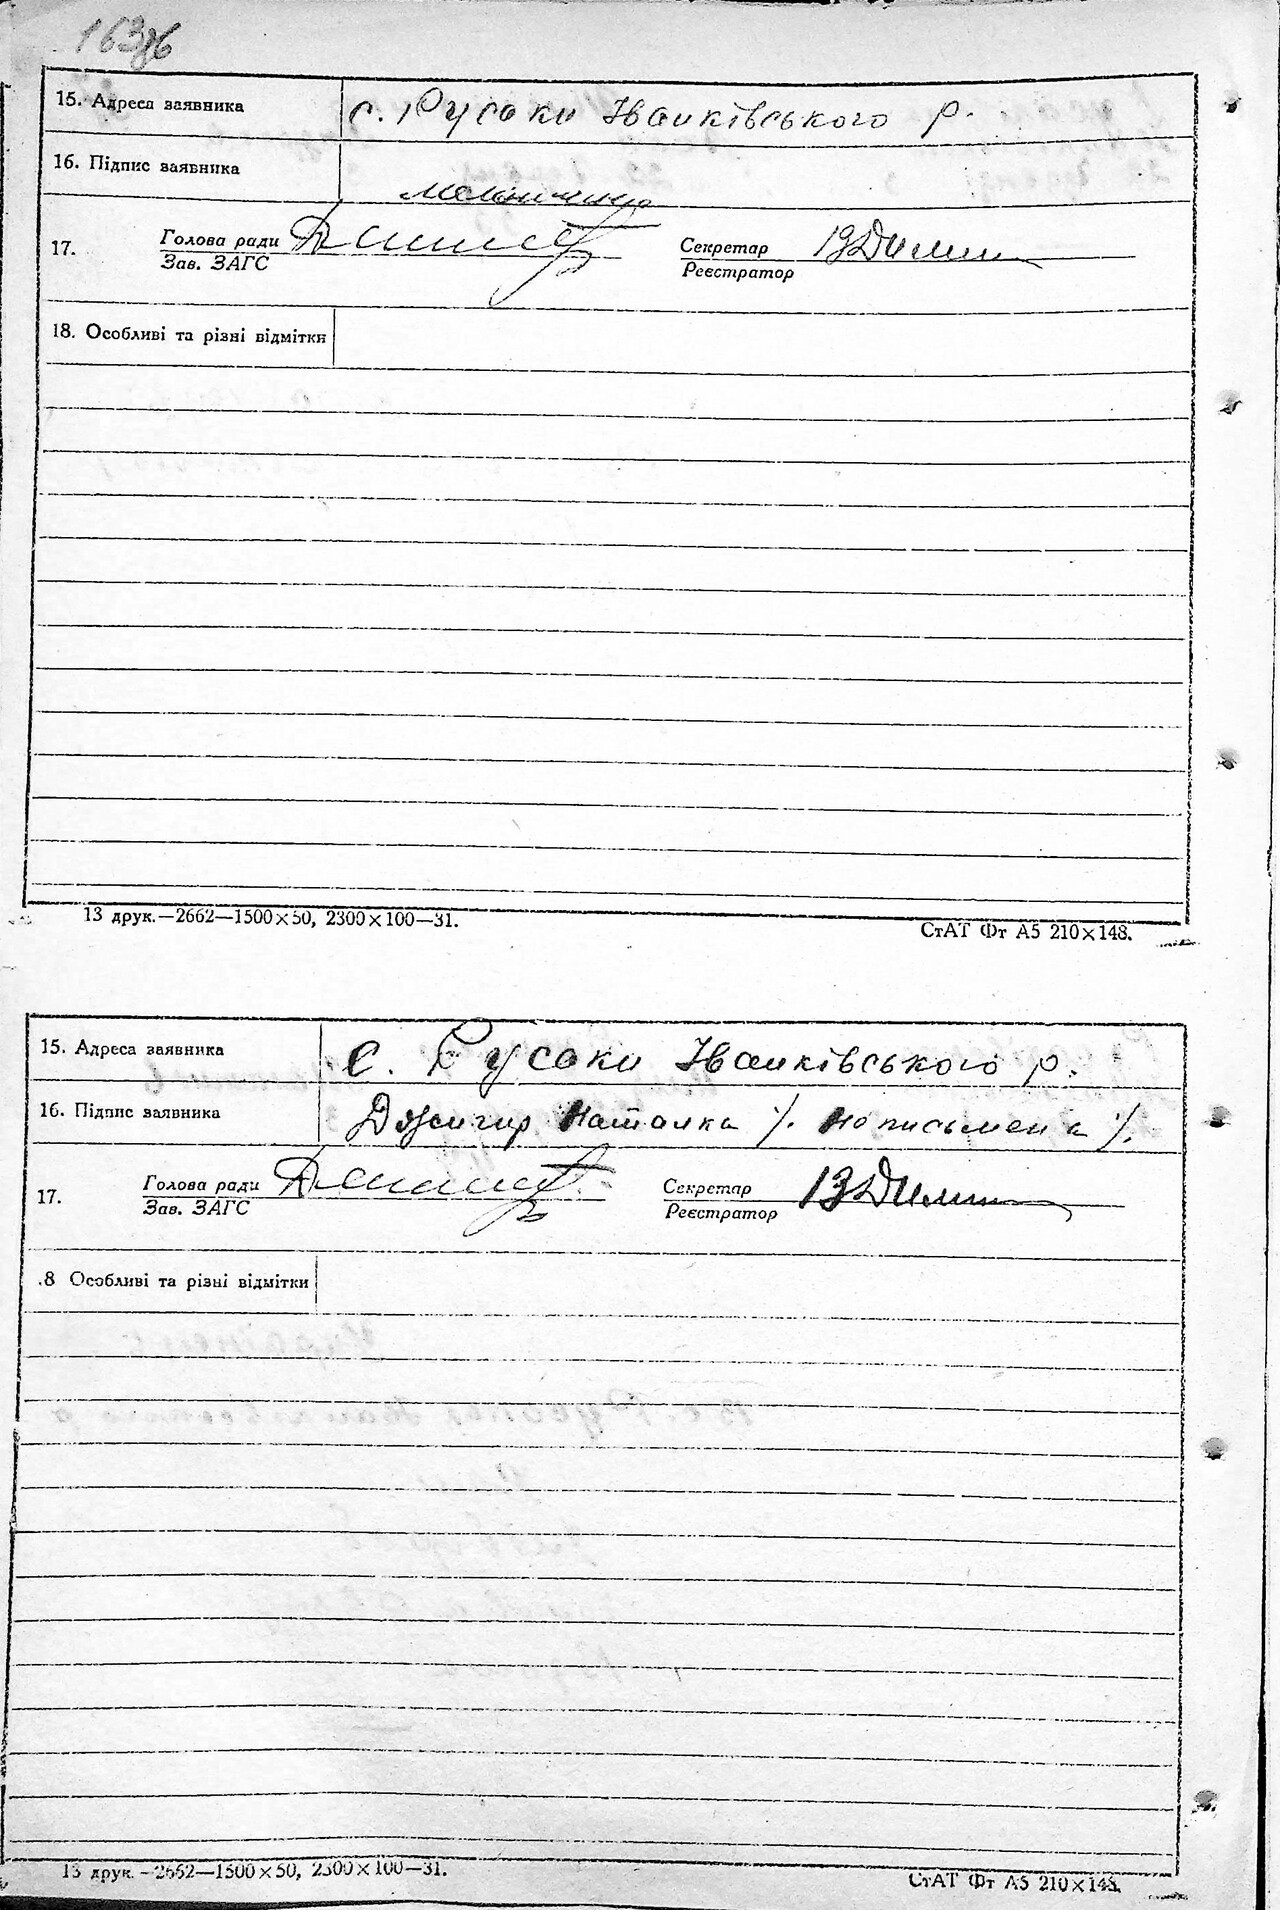 163зв
15. Адреса заявника с. Русаки Іванківського р.
16. Підпис заявника
17. Голова ради Секретар
Зав. ЗАГС Реєстратор
18. Особливі та різні відмітки
13 друк.—2662—1500×50, 2300×100—31.
СтАТ Фт А5 210×148.
15. Адреса заявника с. Русаки Іванківського р.
16. Підпис заявника Наталка /. неписьмена /.
17. Голова ради Секретар
Зав. ЗАГС Реєстратор
8 Особливі та різні відмітки
13 друк.—2662—1500×50, 2300×100—31.
СтАТ Фт А5 210×148.